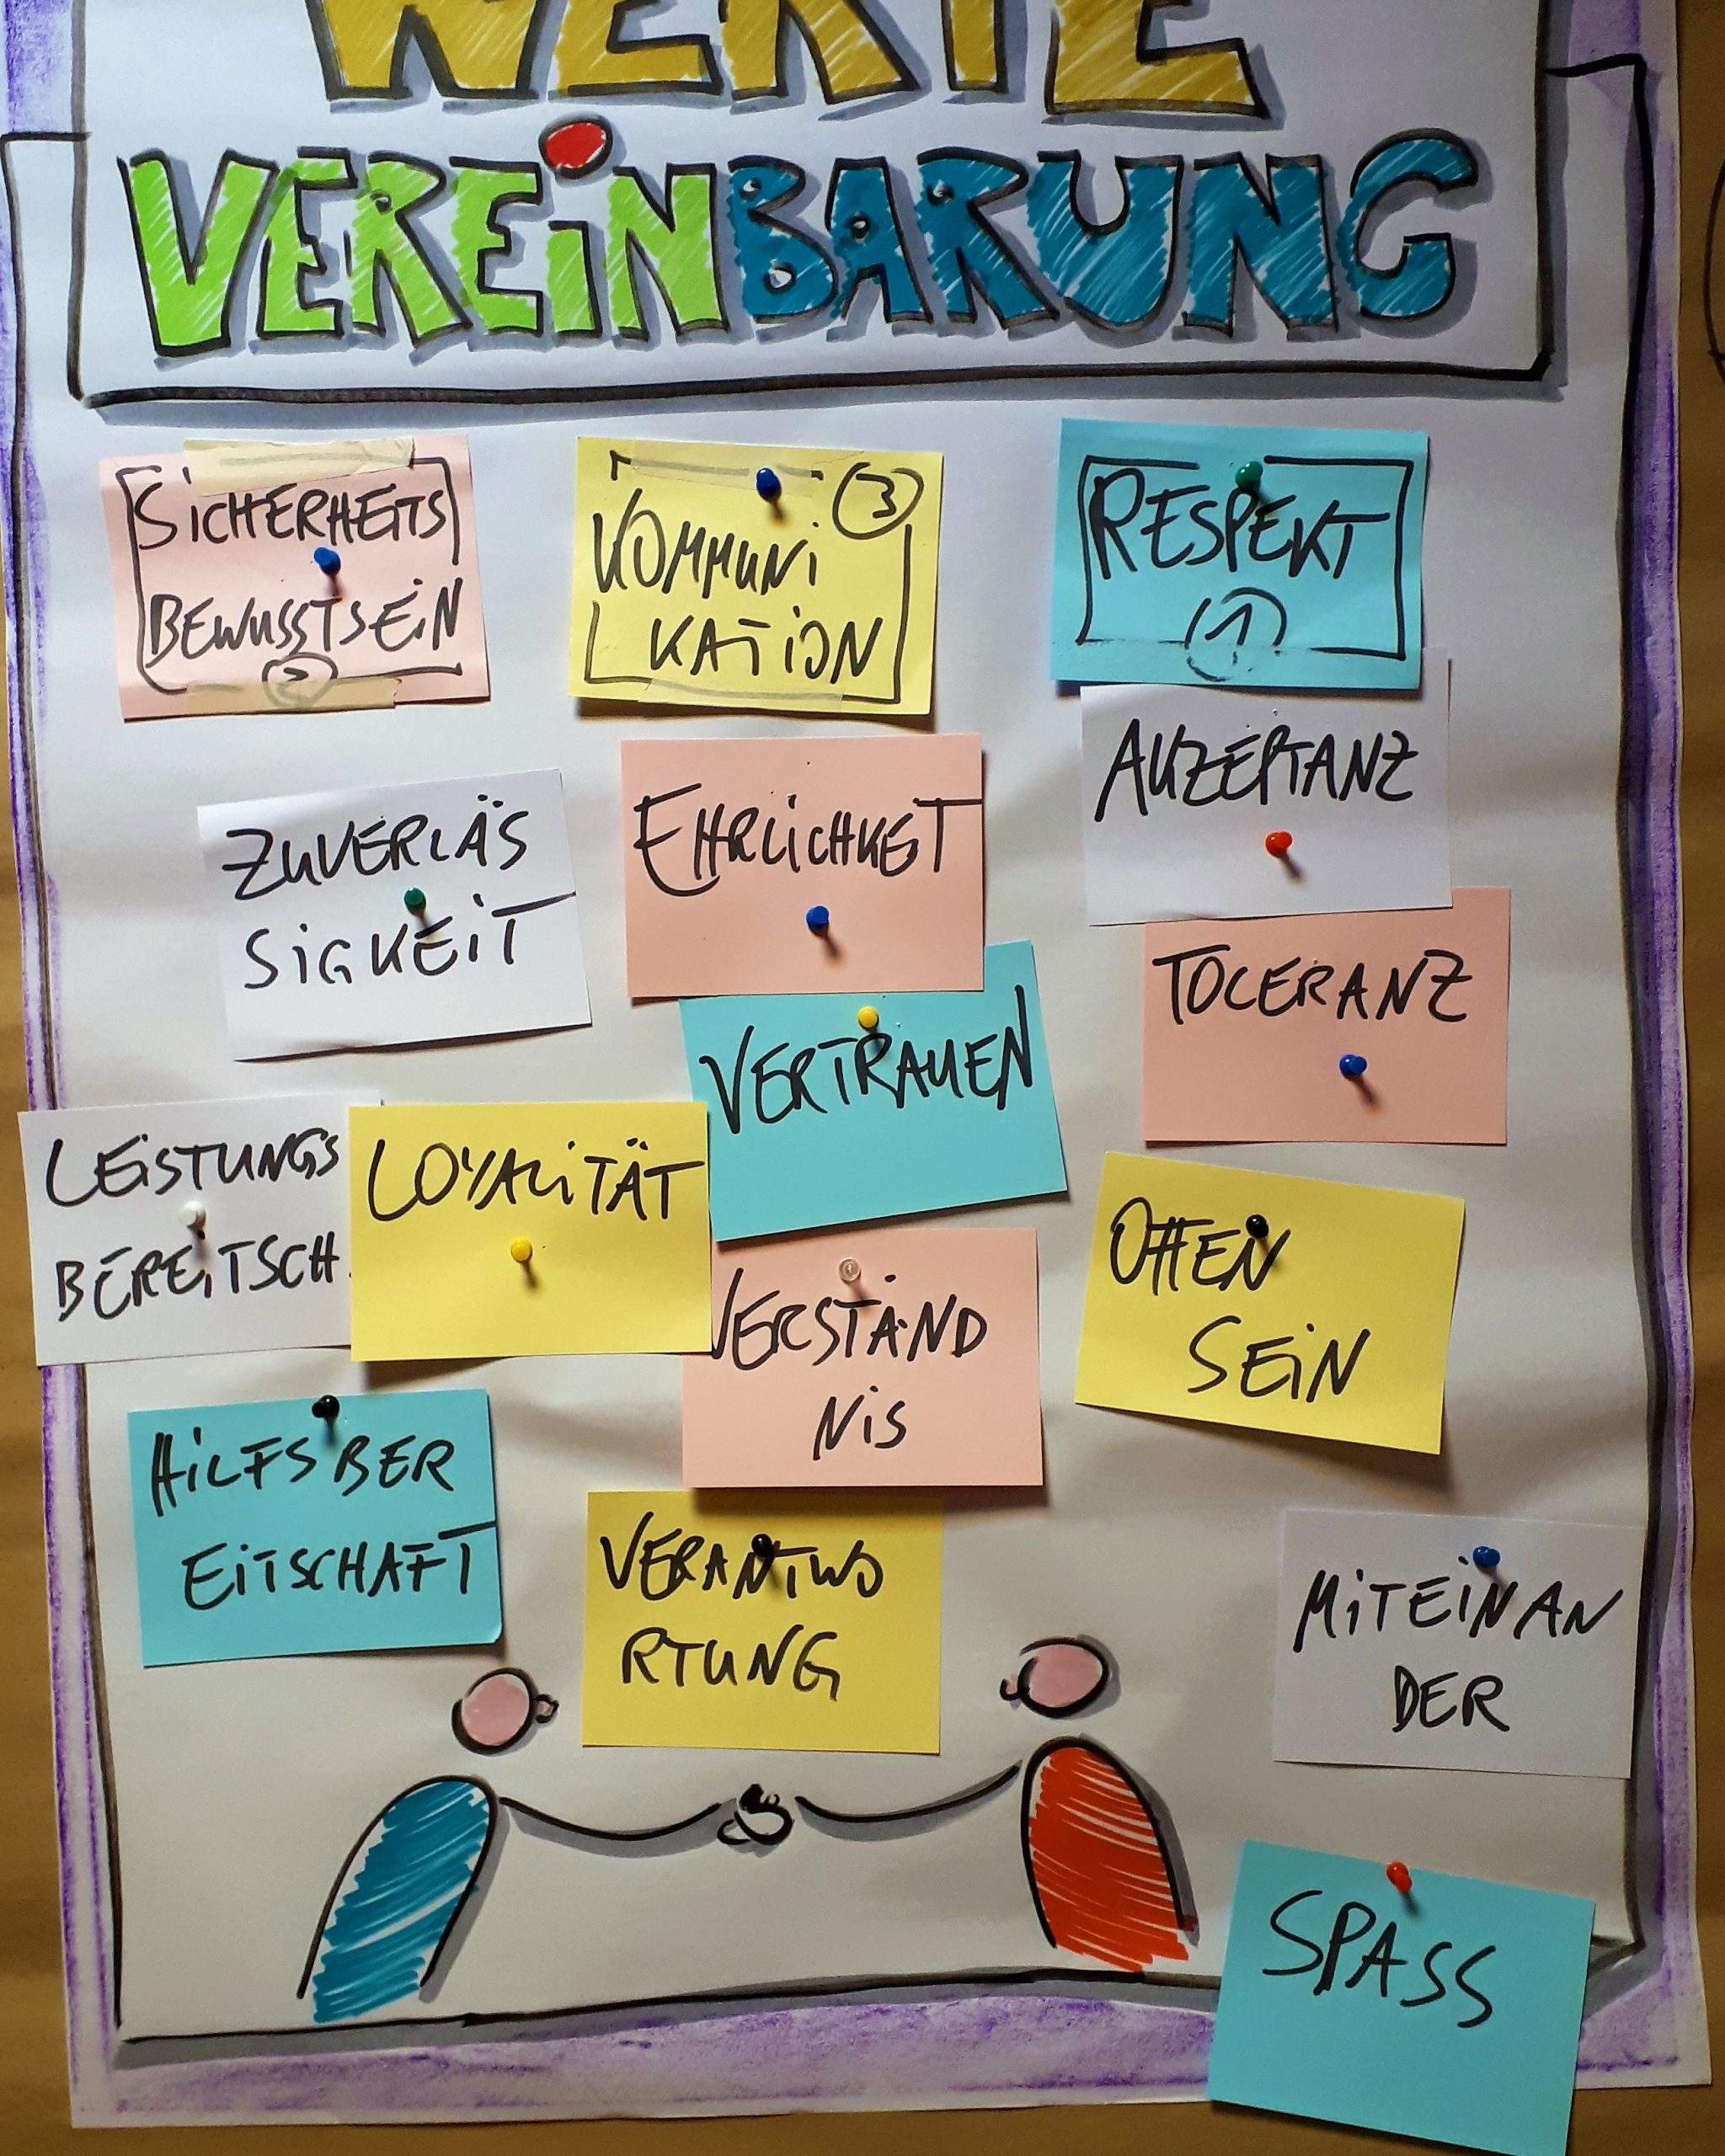 WERTE
VEREINBARUNG
SICHERHEITS
BEWUSSTSEIN
2
3
KOMMUNI
KATION
RESPEKT
1
AKZEPTANZ
ZUVERLÄS
SIGKEIT
EHRLICHKEIT
TOLERANZ
VERTRAUEN
LEISTUNGS
BEREITSCH.
LOYALITÄT
VERSTÄND
NIS
OFFEN
SEIN
HILFSBER
EITSCHAFT
VERANTWO
RTUNG
MITEINAN
DER
SPASS